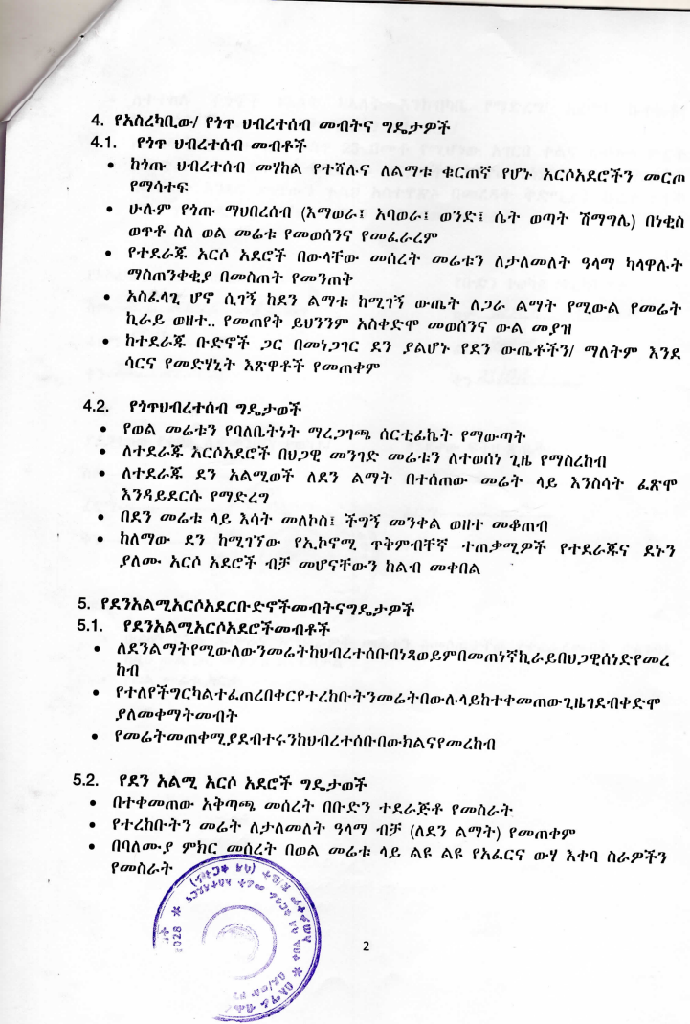 4. የአስረካቢው/ የጎጥ ህብረተሰብ መብትና ግዴታዎች
4.1. የጎጥ ህብረተሰብ መብቶች
• ከጎጡ ህብረተሰብ መሃከል የተሻሉና ለልማቱ ቁርጠኛ የሆኑ አርሶአደሮችን መርጦ
የማሳተፍ
• ሁሉም የጎጡ ማህበረሰብ (እማወራ፤ አባወራ፤ ወንድ፤ ሴት ወጣት ሽማግሌ) በነቂስ
ወጥቶ ስለ ወል መሬቱ የመወሰንና የመፈራረም
• የተደራጁ አርሶ አደሮች በውላቸው መሰረት መሬቱን ለታለመለት ዓላማ ካላዋሉት
ማስጠንቀቂያ በመስጠት የመንጠቅ
• አስፈላጊ ሆኖ ሲገኝ ከደን ልማቱ ከሚገኝ ውጤት ለጋራ ልማት የሚውል የመሬት
ኪራይ ወዘተ.. የመጠየቅ ይህንንም አስቀድሞ መወሰንና ውል መያዝ
• ከተደራጁ ቡድኖች ጋር በመነጋገር ደን ያልሆኑ የደን ውጤቶችን/ ማለትም እንደ
ሳርና የመድሃኒት እጽዋቶች የመጠቀም
4.2. የጎጥህብረተሰብ ግዴታወች
• የወል መሬቱን የባለቤትነት ማረጋገጫ ሰርቲፊኬት የማውጣት
• ለተደራጁ አርሶአደሮች በህጋዊ መንገድ መሬቱን ለተወሰነ ጊዜ የማስረከብ
• ለተደራጁ ደን አልሚወች ለደን ልማት በተሰጠው መሬት ላይ እንስሳት ፈጽሞ
እንዳይደርሱ የማድረግ
• በደን መሬቱ ላይ እሳት መለኮስ፤ ችግኝ መንቀል ወዘተ መቆጠብ
• ከለማው ደን ከሚገኘው የኢኮኖሚ ጥቅምብቸኛ ተጠቃሚዎች የተደራጁና ደኑን
ያለሙ አርሶ አደሮች ብቻ መሆናቸውን ከልብ መቀበል
5. የደንአልሚአርሶአደርቡድኖችመብትናግዴታዎች
5.1. የደንአልሚአርሶአደሮችመብቶች
• ለደንልማትየሚውለውንመሬትከህብረተሰቡበነጻወይምበመጠነኛኪራይበህጋዊሰነድየመረ
ከብ
• የተለየችግርካልተፈጠረበቀርየተረከቡትንመሬትበውለላይከተቀመጠውጊዜገደብቀድሞ
ያለመቀማትመብት
• የመሬትመጠቀሚያደብተሩንከህብረተሰቡበውክልናየመረከብ
5.2. የደን አልሚ አርሶ አደሮች ግዴታወች
• በተቀመጠው አቅጣጫ መሰረት በቡድን ተደራጅቶ የመስራት
• የተረከቡትን መሬት ለታለመለት ዓላማ ብቻ (ለደን ልማት) የመጠቀም
• በባለሙያ ምክር መሰረት በወል መሬቱ ላይ ልዩ ልዩ የአፈርና ውሃ እቀባ ስራዎችን
የመስራት
2028
2